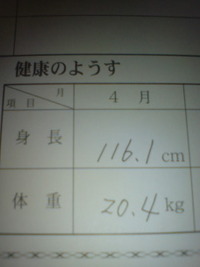 健康のようす
月
項目
4月
身長 116.1cm
体重 20.4kg